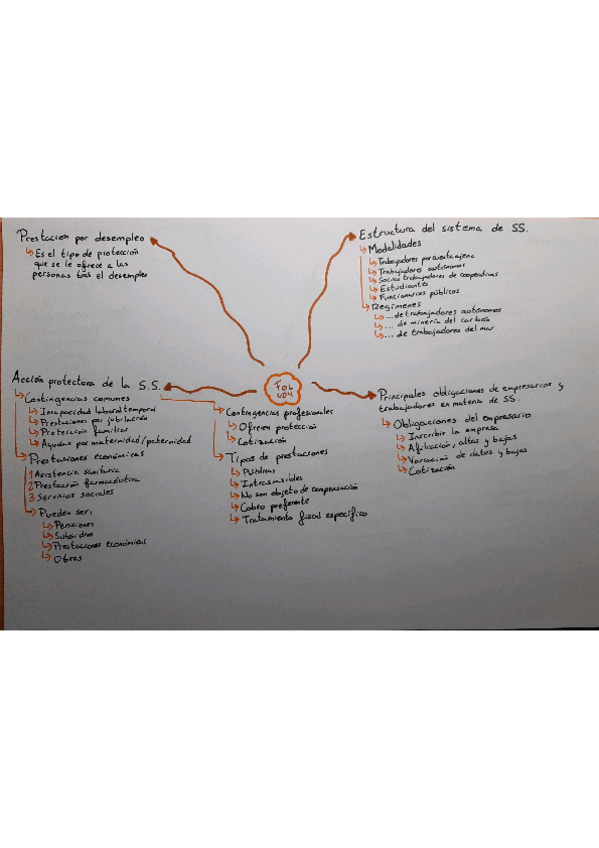 Prestación por desempleo
Es el tipo de protección
que se le ofrece a las
personas tras el desempleo
Estructura del sistema de SS.
Modalidades
Trabajadores por cuenta ajena
Trabajadores autónomos
Socios trabajadores de cooperativas
Estudiantes
Funcionarios públicos
Regímenes
... de trabajadores autónomos
... de minería del carbón
... de trabajadores del mar
FOL
UD4
Acción protectora de la S.S.
Contingencias comunes
Incapacidad laboral temporal
Prestaciones por jubilación
Protección familiar
Ayudas por maternidad/paternidad
Prestaciones económicas
1 Asistencia sanitaria
2 Prestación farmacéutica
3 Servicios sociales
Pueden ser:
Pensiones
Subsidios
Prestaciones económicas
Otras
Contingencias profesionales
Ofrecen protección
Cotización
Tipos de prestaciones
Públicas
No son objeto de compensación
Cobro preferente
Tratamiento fiscal específico
Principales obligaciones de empresarios y
trabajadores en materia de SS.
Obligaciones del empresario
Inscribir la empresa
Afiliación, altas y bajas
Variación de datos y bajas
Cotización